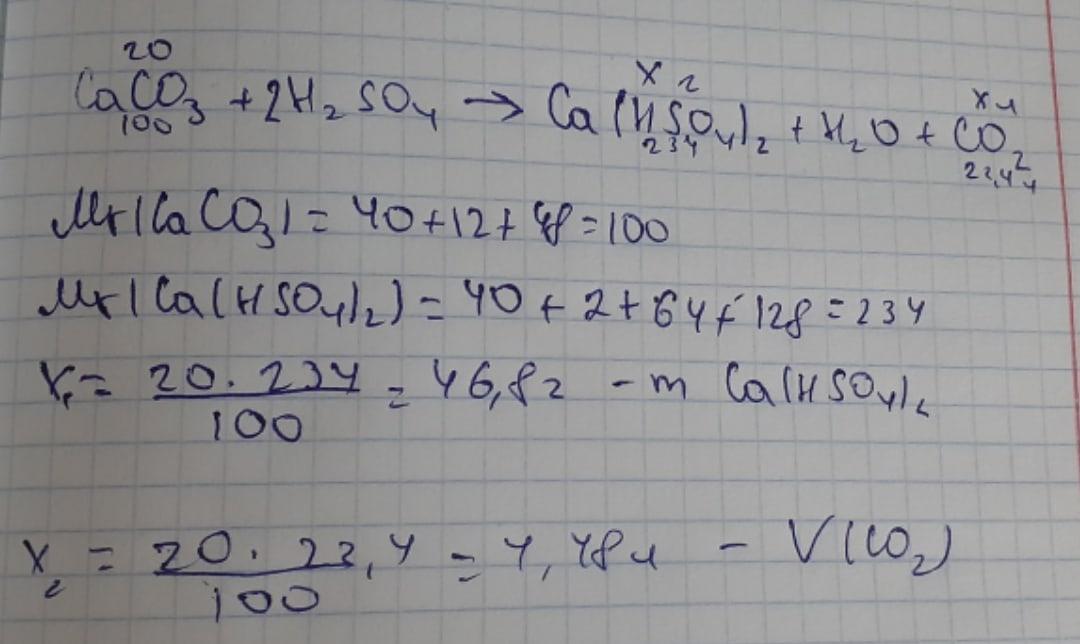 20 x г x л
CaCO3 + 2H2SO4 → Ca(HSO4)2 + H2O + CO2
100 234 22,4 л
Mr(CaCO3) = 40+12+48=100
Mr(Ca(HSO4)2) = 40 + 2 + 64 + 128 = 234
x1 = 20 · 234 / 100 = 46,8 г - m Ca(HSO4)2
x2 = 20 · 22,4 / 100 = 4,48 л - V(CO2)